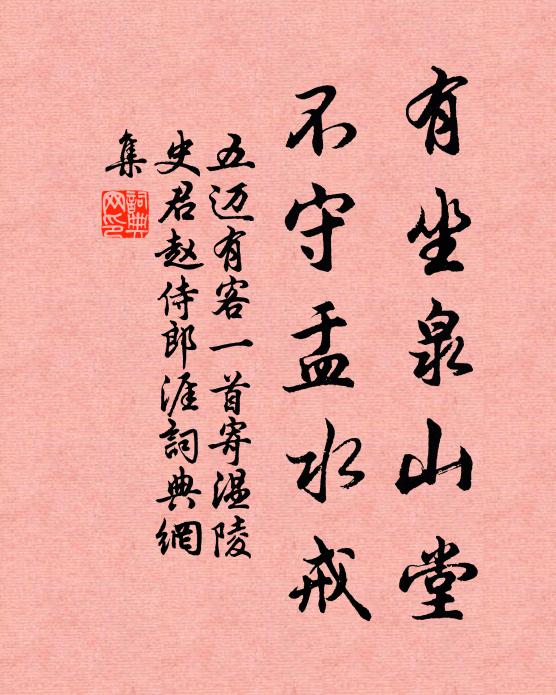 有坐泉山堂
不守盂水戒
五迈有客一首寄温陵
史君赵侍郎涯詞典網
集
詞典網印